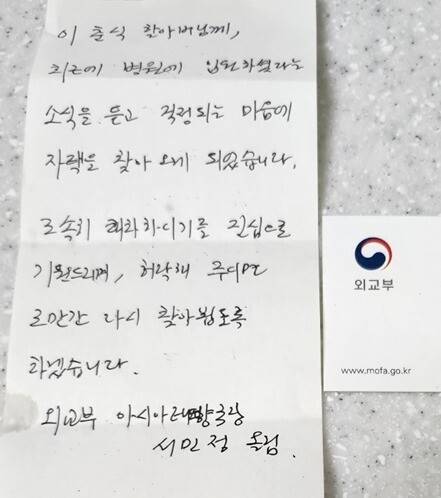 이 춘식 할아버님께,
최근에 병원에 입원하셨다는
소식을 듣고 걱정되는 마음에
자택을 찾아 오게 되었습니다.
조속히 쾌차하시기를 진심으로
기원드리며, 허락해 주시면
조만간 다시 찾아뵙도록
하겠습니다.
외교부 아시아태평양국장
서민정 올림.
외교부
www.mofa.go.kr